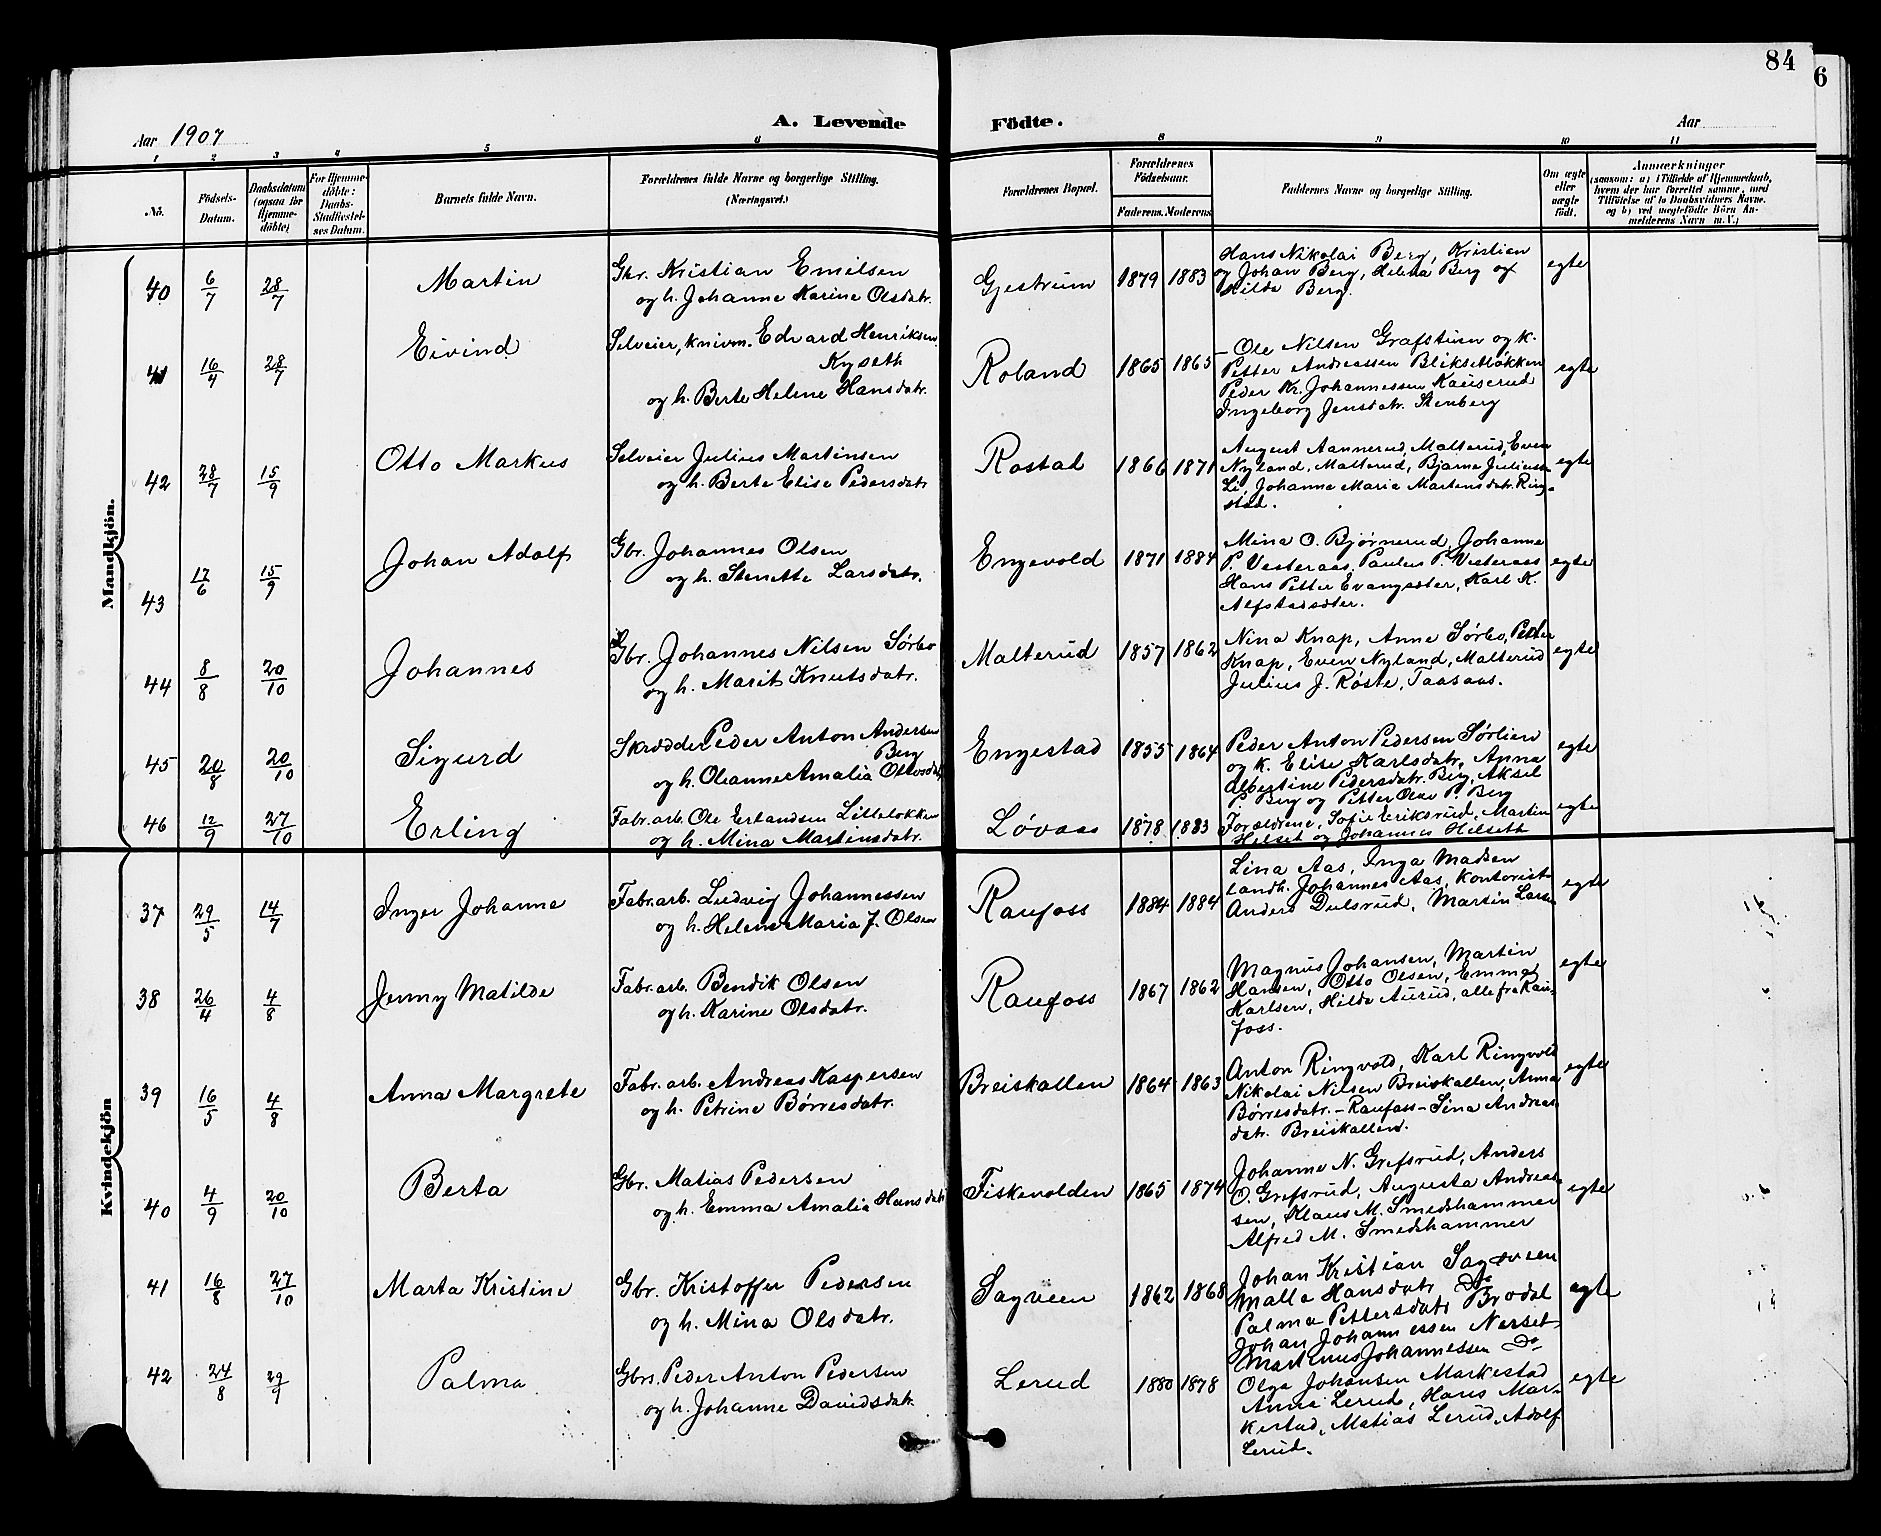 84
6
Aar 1907
A. Levende Födte.
Aar
1 2 3 4 5 6 8 9 10 11
No. Födsels-Datum. Daabsdatum (ogsaa for Hjemme-döbte) For Hjemme-döbte: Daabs-Stadfæstel-ses Datum. Barnets fulde Navn. Forældrenes fulde Navne og borgerlige Stilling. (Næringsvei.) Forældrenes Bopæl. Forældrenes Födselsaar. Faderens. Moderens. Faddernes Navne og borgerlige Stilling. Om ægte eller uægte födt. Anmærkninger (saasom: a) i Tilfælde af Hjemmedaab, hvem der har forrettet samme, med Tilföielse af to Daabsvidners Navne, og b) ved uægtefödte Börn An-melderens Navn m. V.)
Mandkjön.
40 6/7 28/7 Martin
Gbr. Kristian Emilsen
og h. Johanne Karine Olsdatr.
Gjestrum 1879 1883
Hans Nikolai Berg, Kristian
og Johan Berg, Helena Berg og
Hilda Berg.
egte
41 16/4 28/7 Eivind
Selveier, knivm. Edvard Henriksen
Kyseth
og h. Berte Helene Hansdatr.
Roland 1865 1865
Ole Nilsen Grafstuen og k.
Petter Andreassen Blikset­løkken
Peder Kr. Johannessen Kauserud
Ingeborg Jensdatr. Stenberg
egte
42 28/7 15/9 Otto Markus
Selveier Julius Martinsen
og h. Berte Elise Pedersdatr
Rostad 1866 1871
August Aannerud, Malterud, Even
Nyland, Malterud, Bjarne Juliuss.
Li, Johanne Marie Martensdatr. Ring-
stad.
egte
43 17/6 15/9 Johan Adolf
Gbr. Johannes Olsen
og h. Stenette Larsdatr.
Engevold 1871 1884
Mina O. Bjørnerud, Johanne
P. Vesteraas, Paulus P. Vesteraas
Hans Petter Evangsæter, Karl K.
Alfstadsæter.
egte
44 8/8 20/10 Johannes
Gbr. Johannes Nilsen Sørbo
og h. Marit Knutsdatr.
Malterud 1857 1862
Nina Knap, Anne Sørbo, Petter
Knap, Even Nyland, Malterud
Julius J. Røste, Taasaas.
egte
45 20/8 20/10 Sigurd
Skrædder Peder Anton Andersen
Berg
og h. Oleanne Amalia Ottosdatr
Engestad 1855 1864
Peder Anton Pedersen Sørlien
og k. Elise Karlsdatr, Anna
Albertine Pedersdatr. Berg, Aksel
P. Berg og Petter Olav P. Berg
egte
46 12/9 27/10 Erling
Fabr. arb. Ole Erlandsen Lilleløkken
og h. Mina Martinsdatr.
Løvaas 1878 1883
Forældrene, Sofie Eriksrud, Martin
Helset og Johannes Helseth
egte
Kvindekjön
37 29/5 14/7 Inger Johanne
Fabr. arb. Ludvig Johannessen
og h. Helene Maria J. Olsen
Raufoss 1884 1884
Lina Aas, Inga Madsen
landh. Johannes Aas, kontorist
Anders Dulsrud, Martin Larsen
egte
38 26/4 4/8 Jenny Matilde
Fabr. arb. Bendik Olsen
og h. Karine Olsdatr.
Raufoss 1867 1862
Magnus Johansen, Martin
Hansen, Otto Olsen, Emma
Karlsen, Hilda Aurud, alle fra Rau-
foss.
egte
39 16/5 4/8 Anna Margrete
Fabr. arb. Andreas Kaspersen
og h. Petrine Børresdatr.
Breiskallen 1864 1863
Anton Ringvold, Karl Ringvold
Nikolai Nilsen Breiskallen, Anna
Børresdatr. - Raufoss - Lina Andreas
datr. Breiskallen.
egte
40 4/9 20/10 Berta
Gbr. Matias Pedersen
og h. Emma Amalia Hansdatr
Fiskevolden 1865 1874
Johanne N. Grefsrud, Anders
O. Grefsrud, Augusta Andreas-
sen, Klaus M. Smedshammer
Alfred M. Smedshammer
egte
41 16/8 27/10 Marta Kristine
Gbr. Kristoffer Pedersen
og h. Mina Olsdatr.
Sagveen 1862 1868
Johan Kristian Sagveen
Malla Hansdatr Do
Palma Pettersdatr Brodal
Johan Johannessen Nerset
Martinus Johannessen Do
egte
42 24/8 29/9 Palma
Gbrs. Peder Anton Pedersen
og h. Johanne Davidsdatr.
Lerud 1880 1878
Olga Johansen Markestad
Anna Lerud, Hans Mar-
kestad, Matias Lerud, Adolf
Lerud.
egte